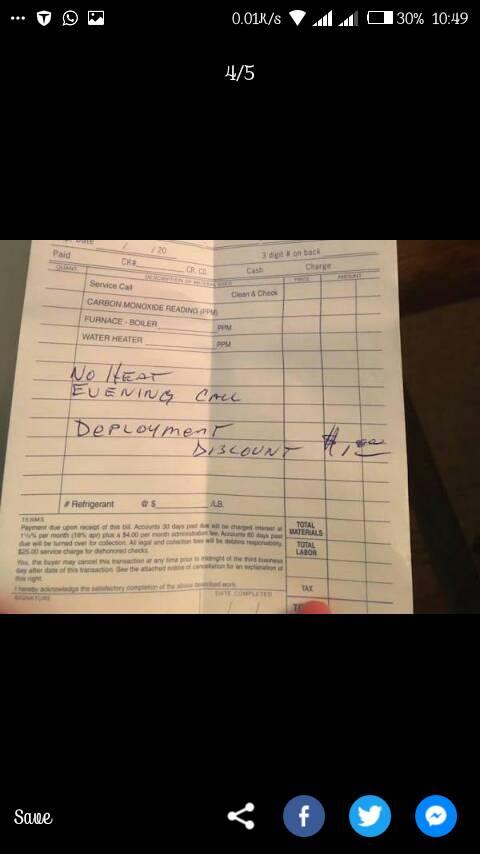 0.01K/s 30% 10:49
4/5
Date / / 20
Paid CK# CR. CD. 3 digit # on back
Cash Charge
QUANT. DESCRIPTION OF MATERIAL USED PRICE AMOUNT
Service Call Clean & Check
CARBON MONOXIDE READING (PPM)
FURNACE - BOILER PPM
WATER HEATER PPM
NO HEAT
EVENING CALL
DEPLOYMENT
DISCOUNT $1.00
# Refrigerant @ $ /LB.
TERMS
Payment due upon receipt of this bill. Accounts 30 days past due will be charged interest at
1½% per month (18% apr) plus a $4.00 per month administration fee. Accounts 60 days past
due will be turned over for collection. All legal and collection fees will be debtors responsibility.
$25.00 service charge for dishonored checks.
TOTAL
MATERIALS
TOTAL
LABOR
You, the buyer may cancel this transaction at any time prior to midnight of the third business
day after date of this transaction. See the attached notice of cancellation for an explanation of
this right.
I hereby acknowledge the satisfactory completion of the above described work.
TAX
SIGNATURE DATE COMPLETED / /
Save